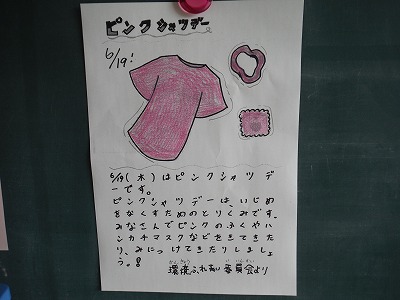 ピンクシャツデー
6/19!
6/19(木)はピンクシャツデ
ーです。
ピンクシャツデーは、いじめ
をなくすためのとりくみです。
みなさんでピンクのふくやハ
ンカチマスクなどをきてきた
り、みにつけてきたりしましょ
う。!
環境ふれあい委員会より